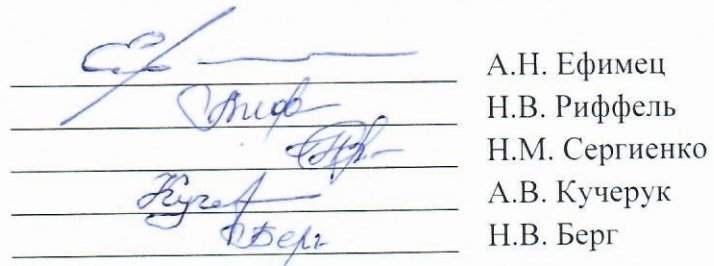 А.Н. Ефимец
Н.В. Риффель
Н.М. Сергиенко
Кучер А.В. Кучерук
Берг Н.В. Берг